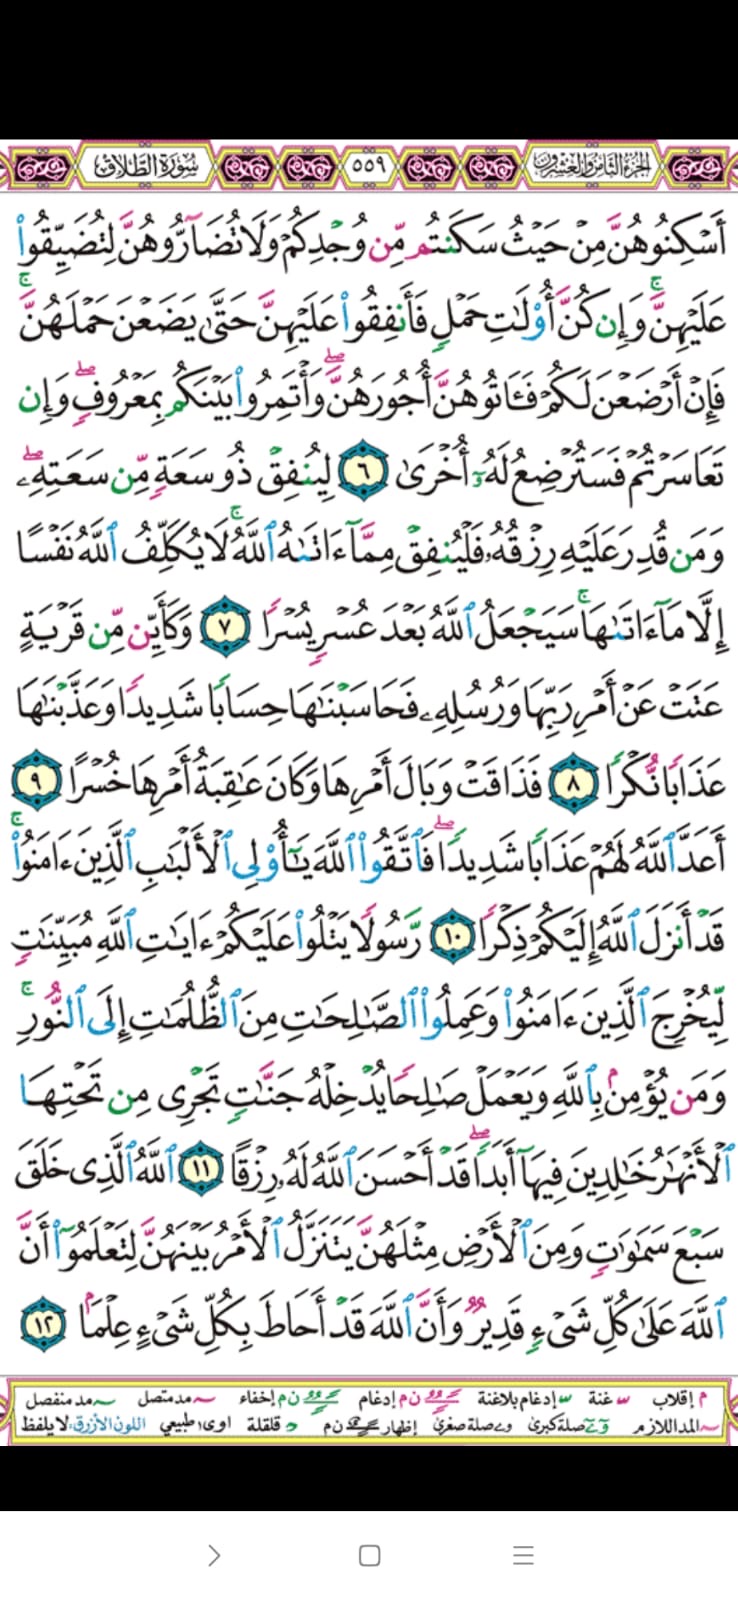 سُورَةُ الطَّلَاقِ ٥٥٩ الجُزْءُ الثَّامِنُ وَالعِشْرُونَ
أَسْكِنُوهُنَّ مِنْ حَيْثُ سَكَنتُم مِّن وُجْدِكُمْ وَلَا تُضَآرُّوهُنَّ لِتُضَيِّقُوا۟
عَلَيْهِنَّ ۚ وَإِن كُنَّ أُو۟لَـٰتِ حَمْلٍ فَأَنفِقُوا۟ عَلَيْهِنَّ حَتَّىٰ يَضَعْنَ حَمْلَهُنَّ ۚ
فَإِنْ أَرْضَعْنَ لَكُمْ فَـَٔاتُوهُنَّ أُجُورَهُنَّ ۖ وَأْتَمِرُوا۟ بَيْنَكُم بِمَعْرُوفٍ ۖ وَإِن
تَعَاسَرْتُمْ فَسَتُرْضِعُ لَهُۥٓ أُخْرَىٰ ٦ لِيُنفِقْ ذُو سَعَةٍ مِّن سَعَتِهِۦ ۖ
وَمَن قُدِرَ عَلَيْهِ رِزْقُهُۥ فَلْيُنفِقْ مِمَّآ ءَاتَىٰهُ ٱللَّهُ ۚ لَا يُكَلِّفُ ٱللَّهُ نَفْسًا
إِلَّا مَآ ءَاتَىٰهَا ۚ سَيَجْعَلُ ٱللَّهُ بَعْدَ عُسْرٍ يُسْرًا ٧ وَكَأَيِّن مِّن قَرْيَةٍ
عَتَتْ عَنْ أَمْرِ رَبِّهَا وَرُسُلِهِۦ فَحَاسَبْنَـٰهَا حِسَابًا شَدِيدًا وَعَذَّبْنَـٰهَا
عَذَابًا نُّكْرًا ٨ فَذَاقَتْ وَبَالَ أَمْرِهَا وَكَانَ عَـٰقِبَةُ أَمْرِهَا خُسْرًا ٩
أَعَدَّ ٱللَّهُ لَهُمْ عَذَابًا شَدِيدًا ۖ فَٱتَّقُوا۟ ٱللَّهَ يَـٰٓأُو۟لِى ٱلْأَلْبَـٰبِ ٱلَّذِينَ ءَامَنُوا۟ ۚ
قَدْ أَنزَلَ ٱللَّهُ إِلَيْكُمْ ذِكْرًا ١٠ رَّسُولًا يَتْلُوا۟ عَلَيْكُمْ ءَايَـٰتِ ٱللَّهِ مُبَيِّنَـٰتٍ
لِّيُخْرِجَ ٱلَّذِينَ ءَامَنُوا۟ وَعَمِلُوا۟ ٱلصَّـٰلِحَـٰتِ مِنَ ٱلظُّلُمَـٰتِ إِلَى ٱلنُّورِ ۚ
وَمَن يُؤْمِنۢ بِٱللَّهِ وَيَعْمَلْ صَـٰلِحًا يُدْخِلْهُ جَنَّـٰتٍ تَجْرِى مِن تَحْتِهَا
ٱلْأَنْهَـٰرُ خَـٰلِدِينَ فِيهَآ أَبَدًا ۖ قَدْ أَحْسَنَ ٱللَّهُ لَهُۥ رِزْقًا ١١ ٱللَّهُ ٱلَّذِى خَلَقَ
سَبْعَ سَمَـٰوَٰتٍ وَمِنَ ٱلْأَرْضِ مِثْلَهُنَّ يَتَنَزَّلُ ٱلْأَمْرُ بَيْنَهُنَّ لِتَعْلَمُوٓا۟ أَنَّ
ٱللَّهَ عَلَىٰ كُلِّ شَىْءٍ قَدِيرٌ وَأَنَّ ٱللَّهَ قَدْ أَحَاطَ بِكُلِّ شَىْءٍ عِلْمًۢا ١٢
م إقلاب غنة إدغام بلاغنة ن م إدغام ن م إخفاء مد متصل مد منفصل
المد اللازم صلة كبرى صلة صغرى إظهار ن م قلقلة اوى طبيعي اللون الأزرق: لا يلفظ